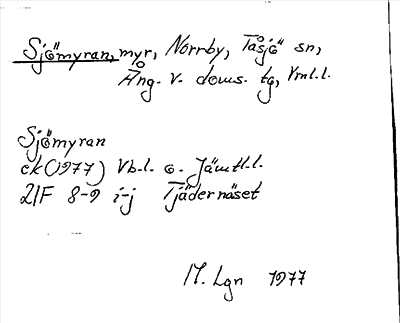 Sjömyran, myr, Norrby, Tåsjö sn,
Ång. v. doms. tg, Vnl.l.
Sjömyran
ek (1977) Vb.l. o. Jämtl.l.
21F 8-9 i-j Tjädernäset
M. Lgn 1977